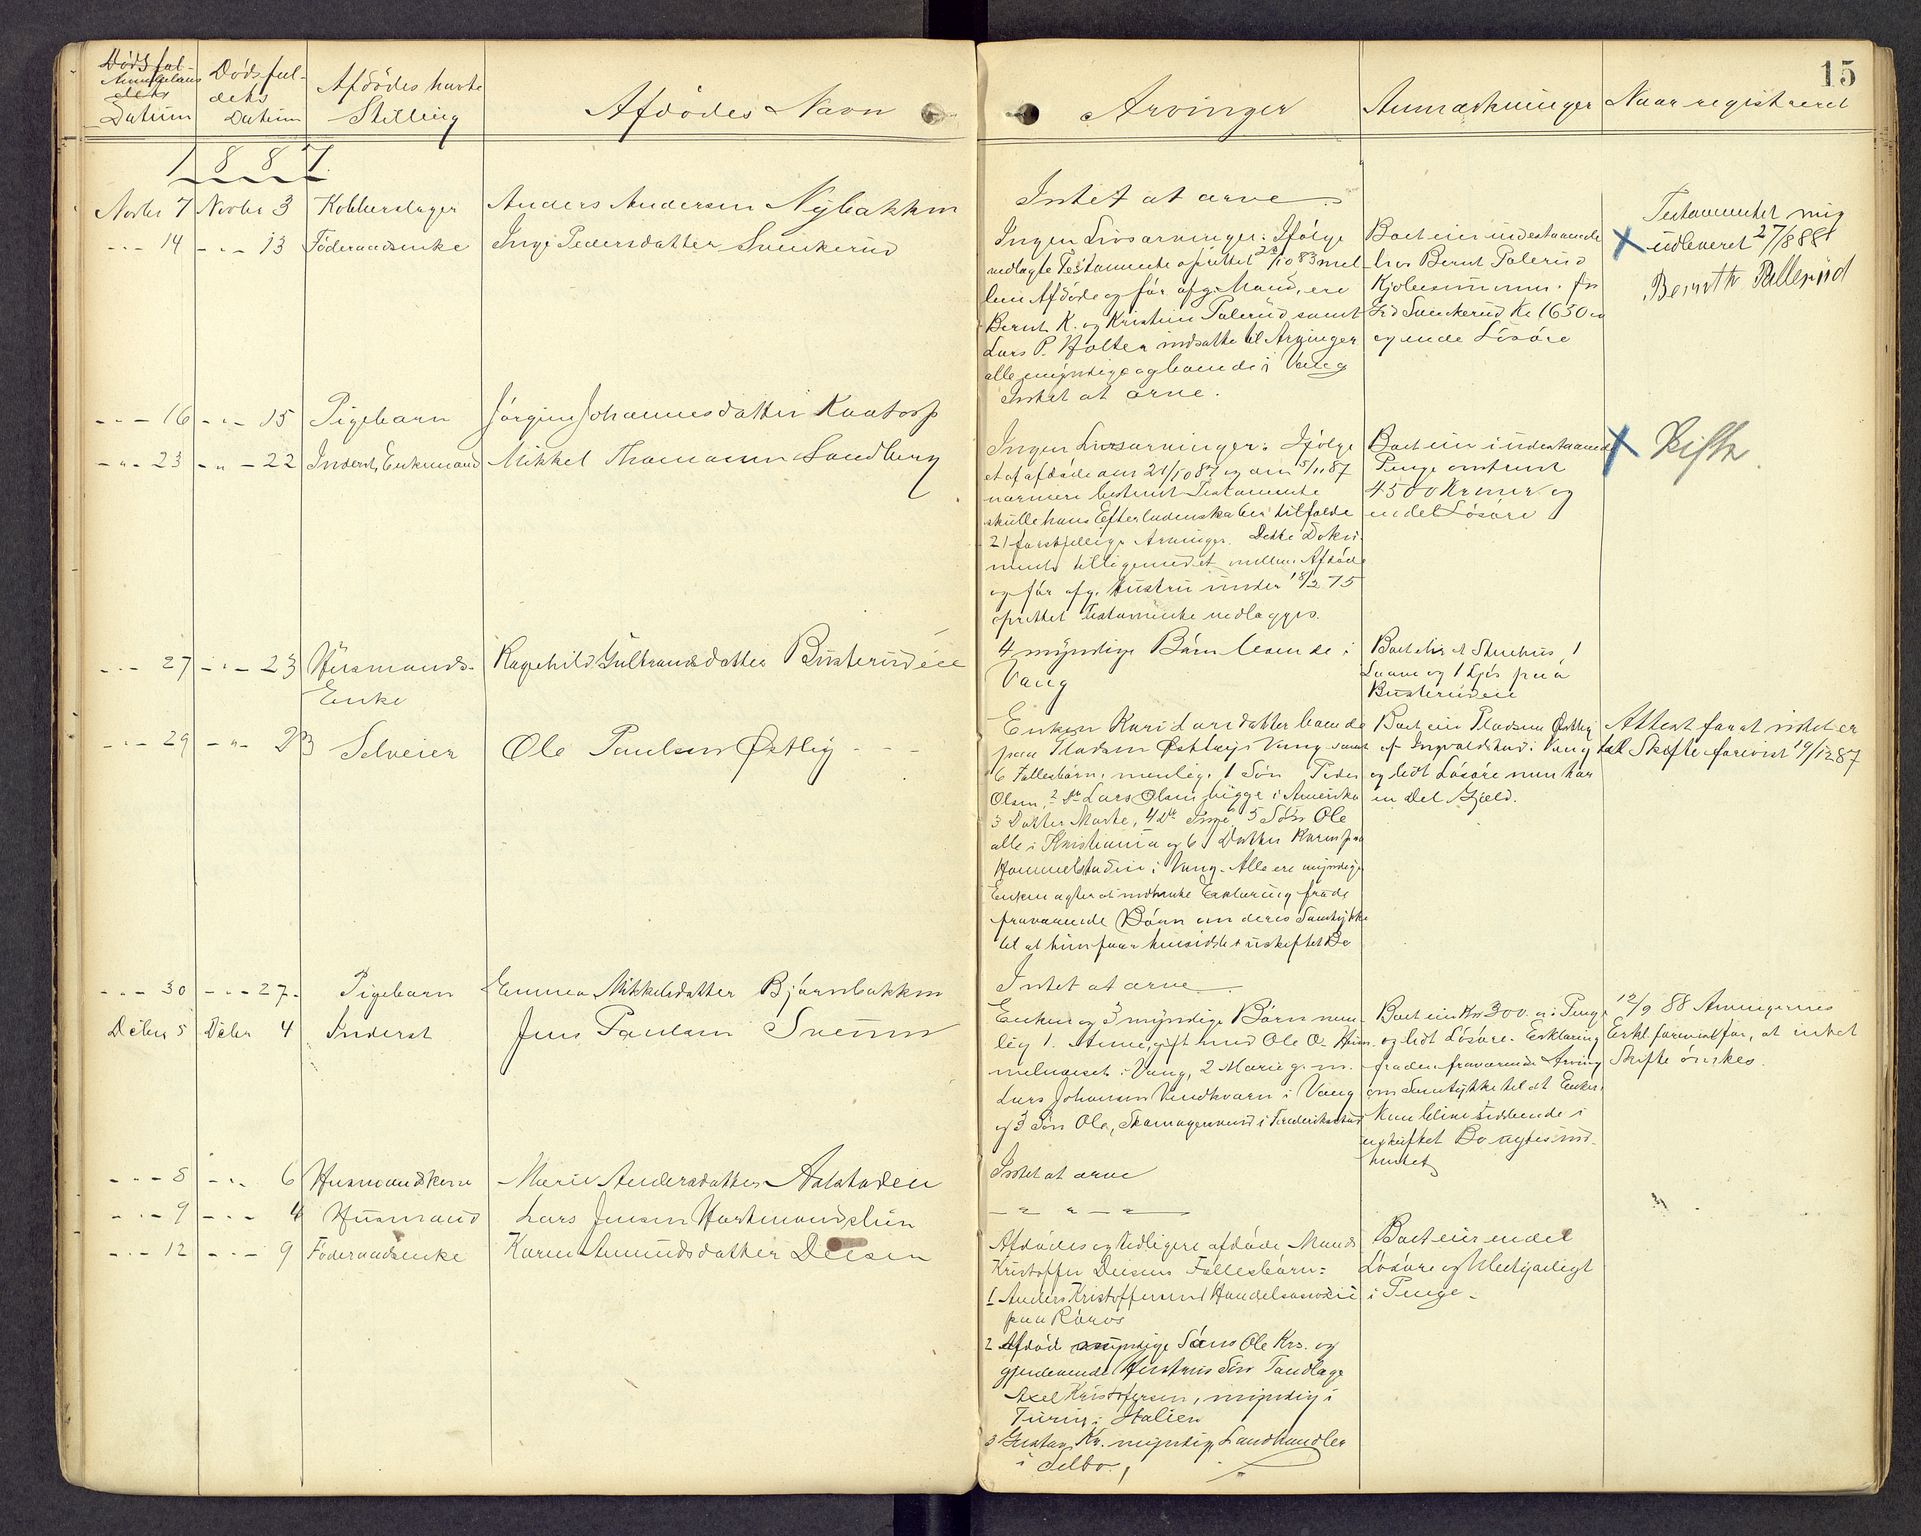 15
Dødsfal-
Anmeldelses
dets
Datum
Dødsfal-
dets
Datum
Afdødes havte
Stilling
Afdødes Navn
Arvinger
Anmærkninger
Naar registreret
1887
Novbr 7 Novbr 3 Kobberslager Anders Andersen Nybakken
Intet at arve.
- " - 14 - " - 13 Føderaadsenke Inge Pedersdatter Svenkerud
Ingen Livsarvinger. Ifølge
vedlagte Testamente oprettet 22/10 83 mel
lem Afdøde og før afg. Mand, ere
Bernt K. og Kristine Palerud samt
Lars P. Holter indsatte til Arvinger
alle myndige og boende i Vang
Boet eier indestaaende
hos Bernt Palerud
Kjøbesummen for
Svenkerud Kr 1630
og endel Løsøre
Testamentet mig
udleveret 27/8 88
Bernth Pallerud
- " - 16 - " - 15 Pigebarn Jørgine Johannesdatter Kaatorp
Intet at arve.
- " - 23 - " - 22 Inderst, Enkemand Mikkel Thomassen Sandberg
Ingen Livsarvinger. Ifølge
et af afdøde am 21/10 87 og am 5/11 87
nærmere bestemt Testamente
skulle hans Efterladenskaber tilfalde
21 forskjellige Arvinger. Dette Doku-
ment tilligemed et mellem Afdøde
og før afg. Hustru under 18/2 75
oprettet Testamente vedlægges.
Boet eier i indestaaende
Penge omtrent
4500 Kroner og
endel Løsøre
Skifte
- " - 27 - " - 23 Husmands-
Enke
Ragnhild Gulbrandsdatter Busterudeie
4 myndige Børn boende i
Vang
Boet eier et Stuehus, 1
Laave og 1 Fjøs paa
Busterudeie
- " - 29 - " - 23 Selveier Ole Paulsen Østby
Enken Kari Larsdatter boende
paa Pladsen Østby i Vang samt
6 Fællesbørn, nemlig. 1 Søn Peder
Olsen, 2 do Lars Olsen, begge i Amerika
3 Datter Marte, 4 do Inge 5 Søn Ole
alle i Kristiania og 6 Datter Karen paa
Hommelstadeie i Vang. Alle ere myndige
Enken agter at indhente Erklæring fra de
fraværende Børn om deres Samtykke
til at hun faar hensidde i uskiftet Bo
Boet eier Pladsen Østby
af Ingvaldstad i Vang
og lidt Løsøre men har
en Del Gjæld.
Attest for at intet er
til Skifte forevist 19/12 87
- " - 30 - " - 27 - Pigebarn Emma Mikkelsdatter Bjørnbakken
Intet at arve.
Decbr 5 Decbr 4 Inderst Jens Paulsen
Enken og 3 myndige Børn nem-
lig 1. Anne, gift med Ole O.
i Vang, 2 Marie g. m.
Lars Johansen Vindkvarn i Vang
og 3 Søn Ole, Skomagersvend i Frederikstad
Boet eier Kr 300. - i Penge
og lidt Løsøre. Erklæring
fra den fraværende Arving
om Samtykke til at Enken
kan blive siddende i
uskiftet Bo agtes ind-
hentet
12/9 88 Arvingernes
Erkl. forevist for, at intet
Skifte ønskes.
- " - 8 - " - 6 Husmandskone Marie Andersdatter Aalstadeie
Intet at arve
- " - 9 - " - 4 Husmand Lars Jensen Hartmandslien
- " - " -
- " - 12 - " - 9 Føderaadsenke Karen Amundsdatter Deisen
Afdødes og tidligere afdøde Mands
Kristoffer Deisens Fællesbørn:
1 Anders Kristoffersen, Handelsassocie
paa Røros
2 Afdød myndige Søns Ole Krs. og
gjenlevende Hustrus Søn Tandlæge
Axel Kristofersen, myndig i
Turin i Italien
3 Gustav Kr. myndig, Landhandler
i Selbo.
Boet eier endel
Løsøre og Ubetydeligt
i Penge.